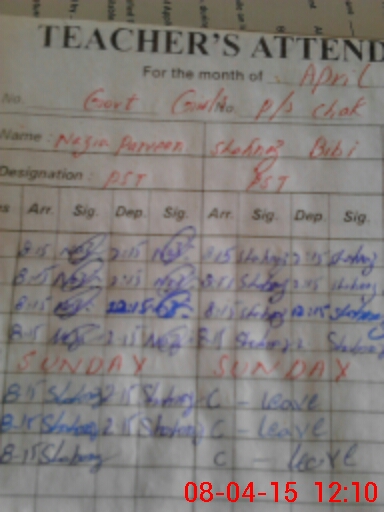 TEACHER'S ATTEND
For the month of April
No. Govt Girls P/S Chak
Name: Nazia Parveen Shahnaz Bibi
Designation: PST PST
Arr. Sig. Dep. Sig. Arr. Sig. Dep. Sig.
8:15 2:15 8:15 Shahnaz 2:15 Shahnaz
8:15 2:15 8:15 Shahnaz 2:15 Shahnaz
8:15 12:15 8:15 Shahnaz 12:15 Shahnaz
8:15 2:15 8:15 Shahnaz 2 Shahnaz
SUNDAY SUNDAY
8-15 Shahnaz 2-15 Shahnaz C - Leave
8-15 Shahnaz 2-15 Shahnaz C - Leave
8-15 Shahnaz C - Leave
08-04-15 12:10